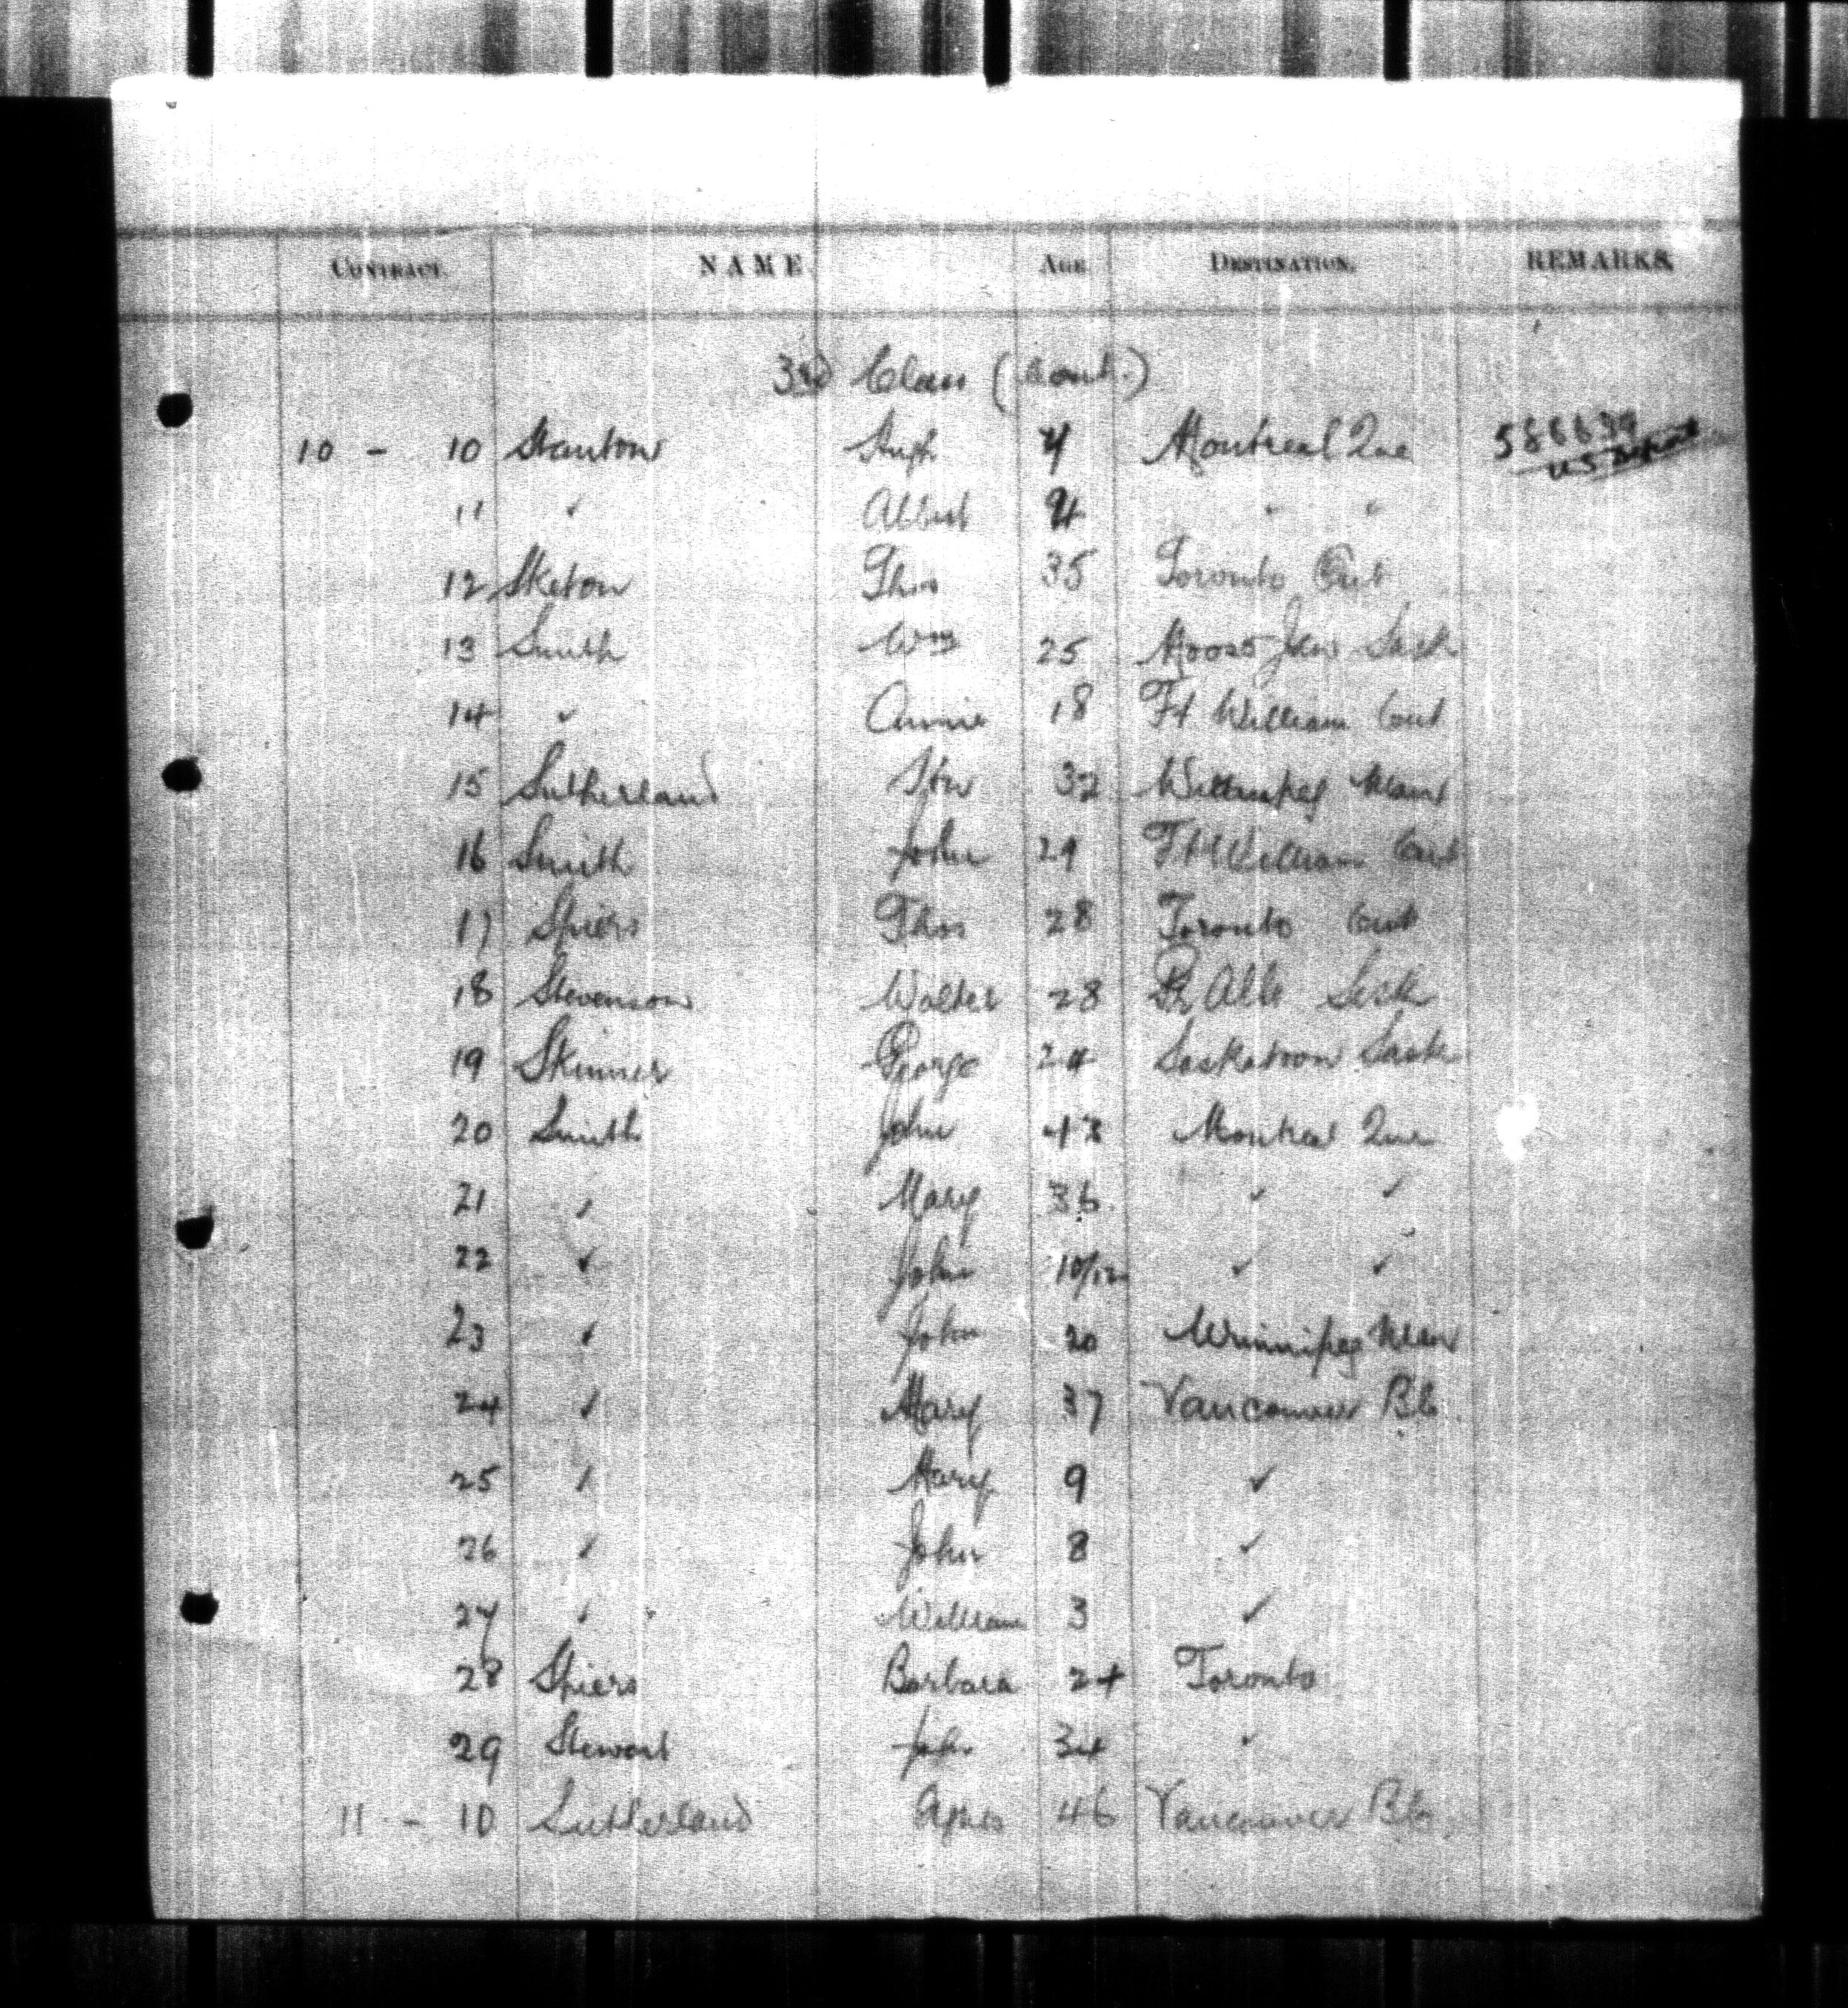 CONTRACT. NAME. AGE DESTINATION. REMARKS
3rd Class (Cont.)
10 - 10 Stanton Hugh 4 Montreal Que
11 " Albert " "
12 Sketon Thos 35 Toronto Ont
13 Smith Wm 25 Moose Jaw Sask
14 " Annie 18 Ft William Ont
15 Sutherland 32 Winnipeg Man
16 Smith John 29 Ft William Ont
17 Spiers Thos 28 Toronto Ont
18 Stevenson Walter 28 Pr Alb Sask
19 Skinner George 24 Saskatoon Sask
20 Smith John 43 Montreal Que
21 " Mary 36 " "
22 " John 10/12 " "
23 " John 20 Winnipeg Man
24 " Mary 37 Vancouver BC
25 " Mary 9 "
26 " John 8 "
27 " William 3 "
28 Spiers Barbara 24 Toronto
29 Stewart John 34 "
11 - 10 Sutherland Agnes 46 Vancouver BC